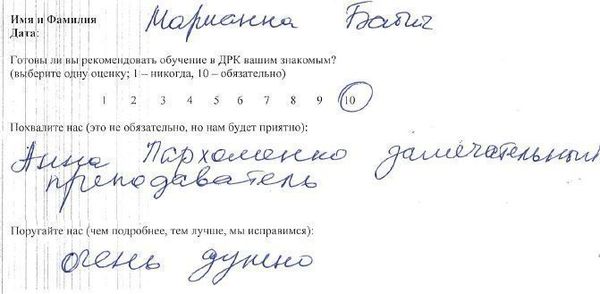 Имя и Фамилия Марианна Бабич
Дата:
Готовы ли вы рекомендовать обучение в ДРК вашим знакомым?
(выберите одну оценку; 1 – никогда, 10 – обязательно)
1 2 3 4 5 6 7 8 9 10
Похвалите нас (это не обязательно, но нам будет приятно):
Анна Пархоменко замечательный
преподаватель
Поругайте нас (чем подробнее, тем лучше, мы исправимся):
очень душно